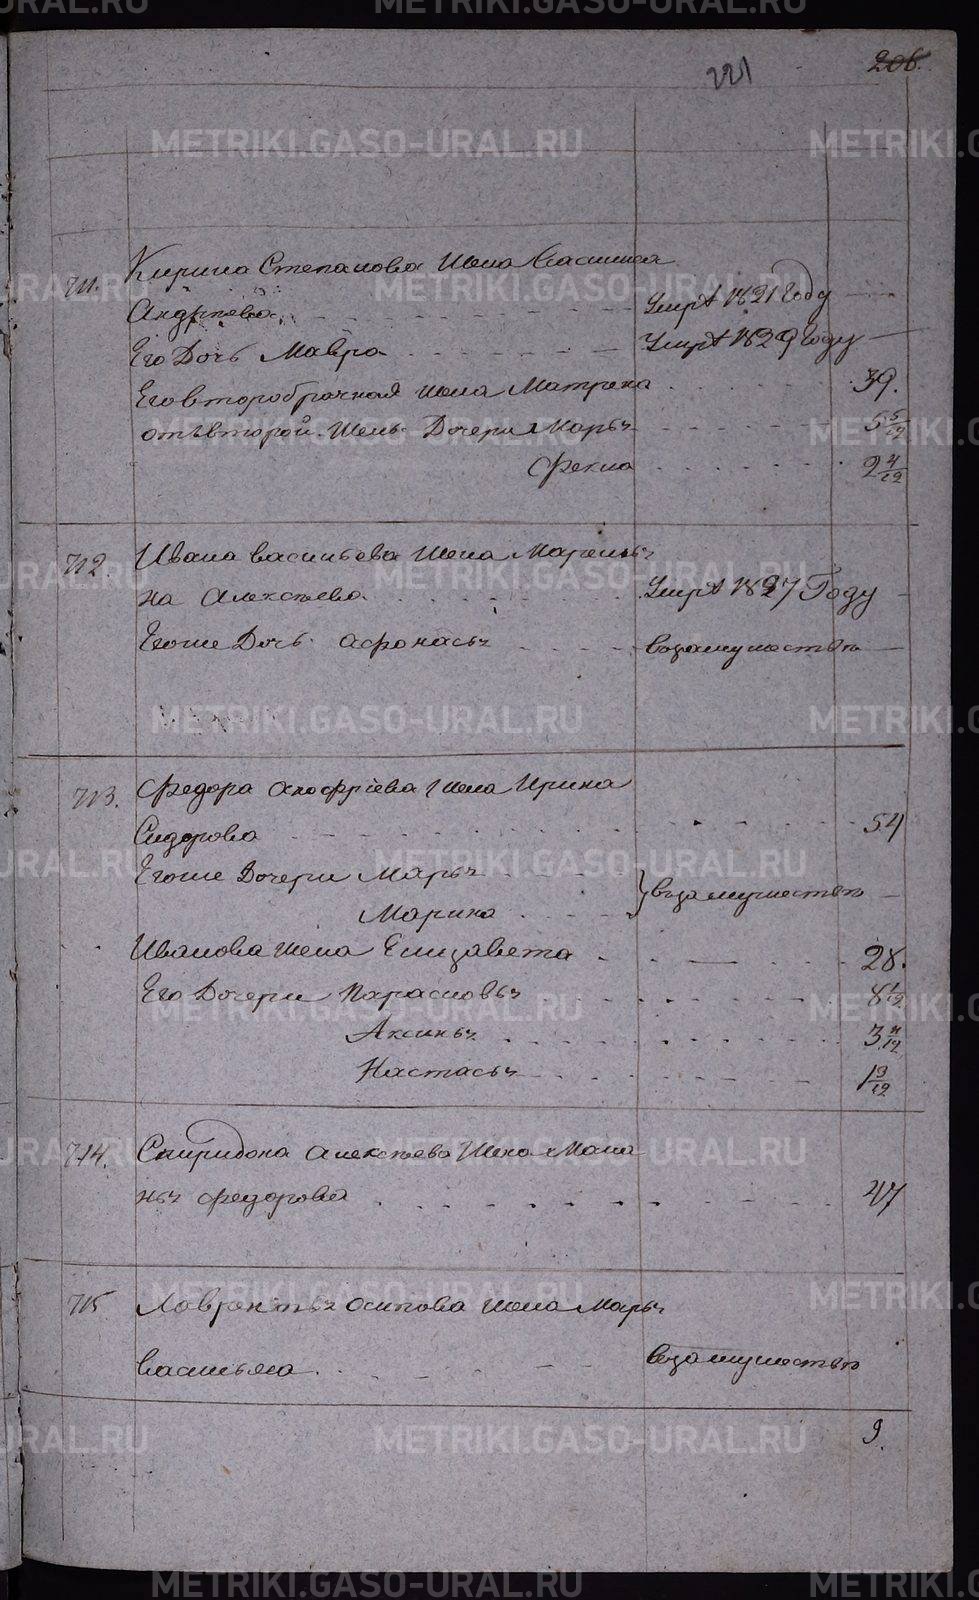 221 206.
711. Кирила Степанова жена Васииса
Андрѣева умрѣ 1821 Году
Его Дочь Мавра умрѣ 1829 Году
Его второбрачная жена Матрена 39.
отъ второй жены Дочери Марья 5 5/12
Фекла 2 4/12
712. Ивана Васильева жена Маремья
на Алексѣева умрѣ 1827 Году
Его же Дочь Афонасья взамужствѣ
713. Федора Анофріева жена Ирина
Сидорова 54
Его же Дочери Марья
Марина взамужествѣ
Иванова жена Елизавета 28.
Его Дочери Парасковья 8 1/12
Аксинья 3 4/12
Настасья 1 9/12
714. Спиридона Алексѣева жена Мала
нья Федорова 47
715 Лаврентья Осипова жена Марья
Васильева взамужествѣ
9.
METRIKI.GASO-URAL.RU